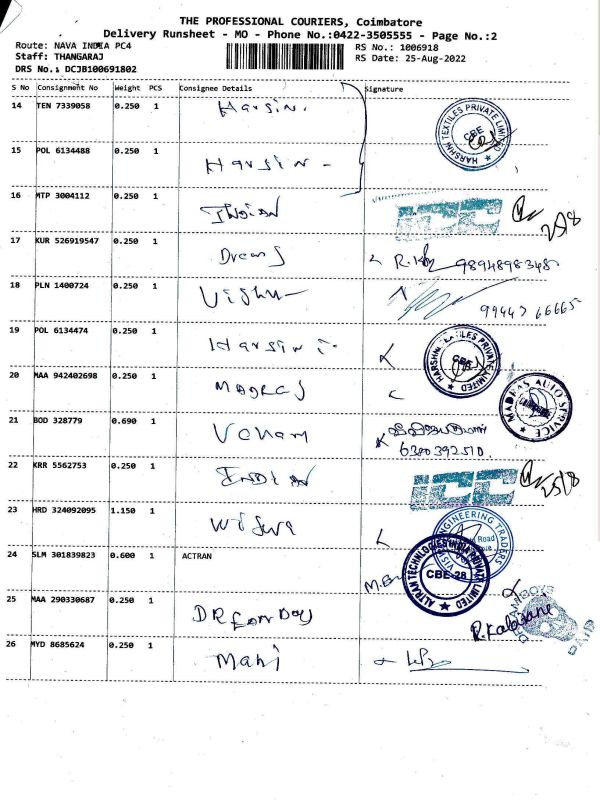 THE PROFESSIONAL COURIERS, Coimbatore
Delivery Runsheet - MO - Phone No.:0422-3505555 - Page No.:2
Route: NAVA INDIA PC4 RS No.: 1006918
Staff: THANGARAJ RS Date: 25-Aug-2022
DRS No.: DCJB100691802
S No Consignment No Weight PCS Consignee Details Signature
14 TEN 7339058 0.250 1 Harsin. HARSHNI TEXTILES PRIVATE LIMITED CBE
15 POL 6134488 0.250 1 Harsin -
16 MTP 3004112 0.250 1 INDIAN ICC 25/8
17 KUR 526919547 0.250 1 Dreams
18 PLN 1400724 0.250 1 Vishu 99447 66665
19 POL 6134474 0.250 1 Harsini HARSHNI TEXTILES PRIVATE LIMITED CBE
20 MAA 942402698 0.250 1 MADRAS MADRAS AUTO SERVICE
21 BOD 328779 0.690 1 6380392510.
22 KRR 5562753 0.250 1 INDIAN ICC 25/8
23 HRD 324092095 1.150 1 ENGINEERING TRADERS
24 SLM 301839823 0.600 1 ACTRAN ALTRAN TECHNOLOGIES INDIA PRIVATE LIMITED CBE-28
25 MAA 290330687 0.250 1 R. Kalavani
26 MYD 8685624 0.250 1 Mani